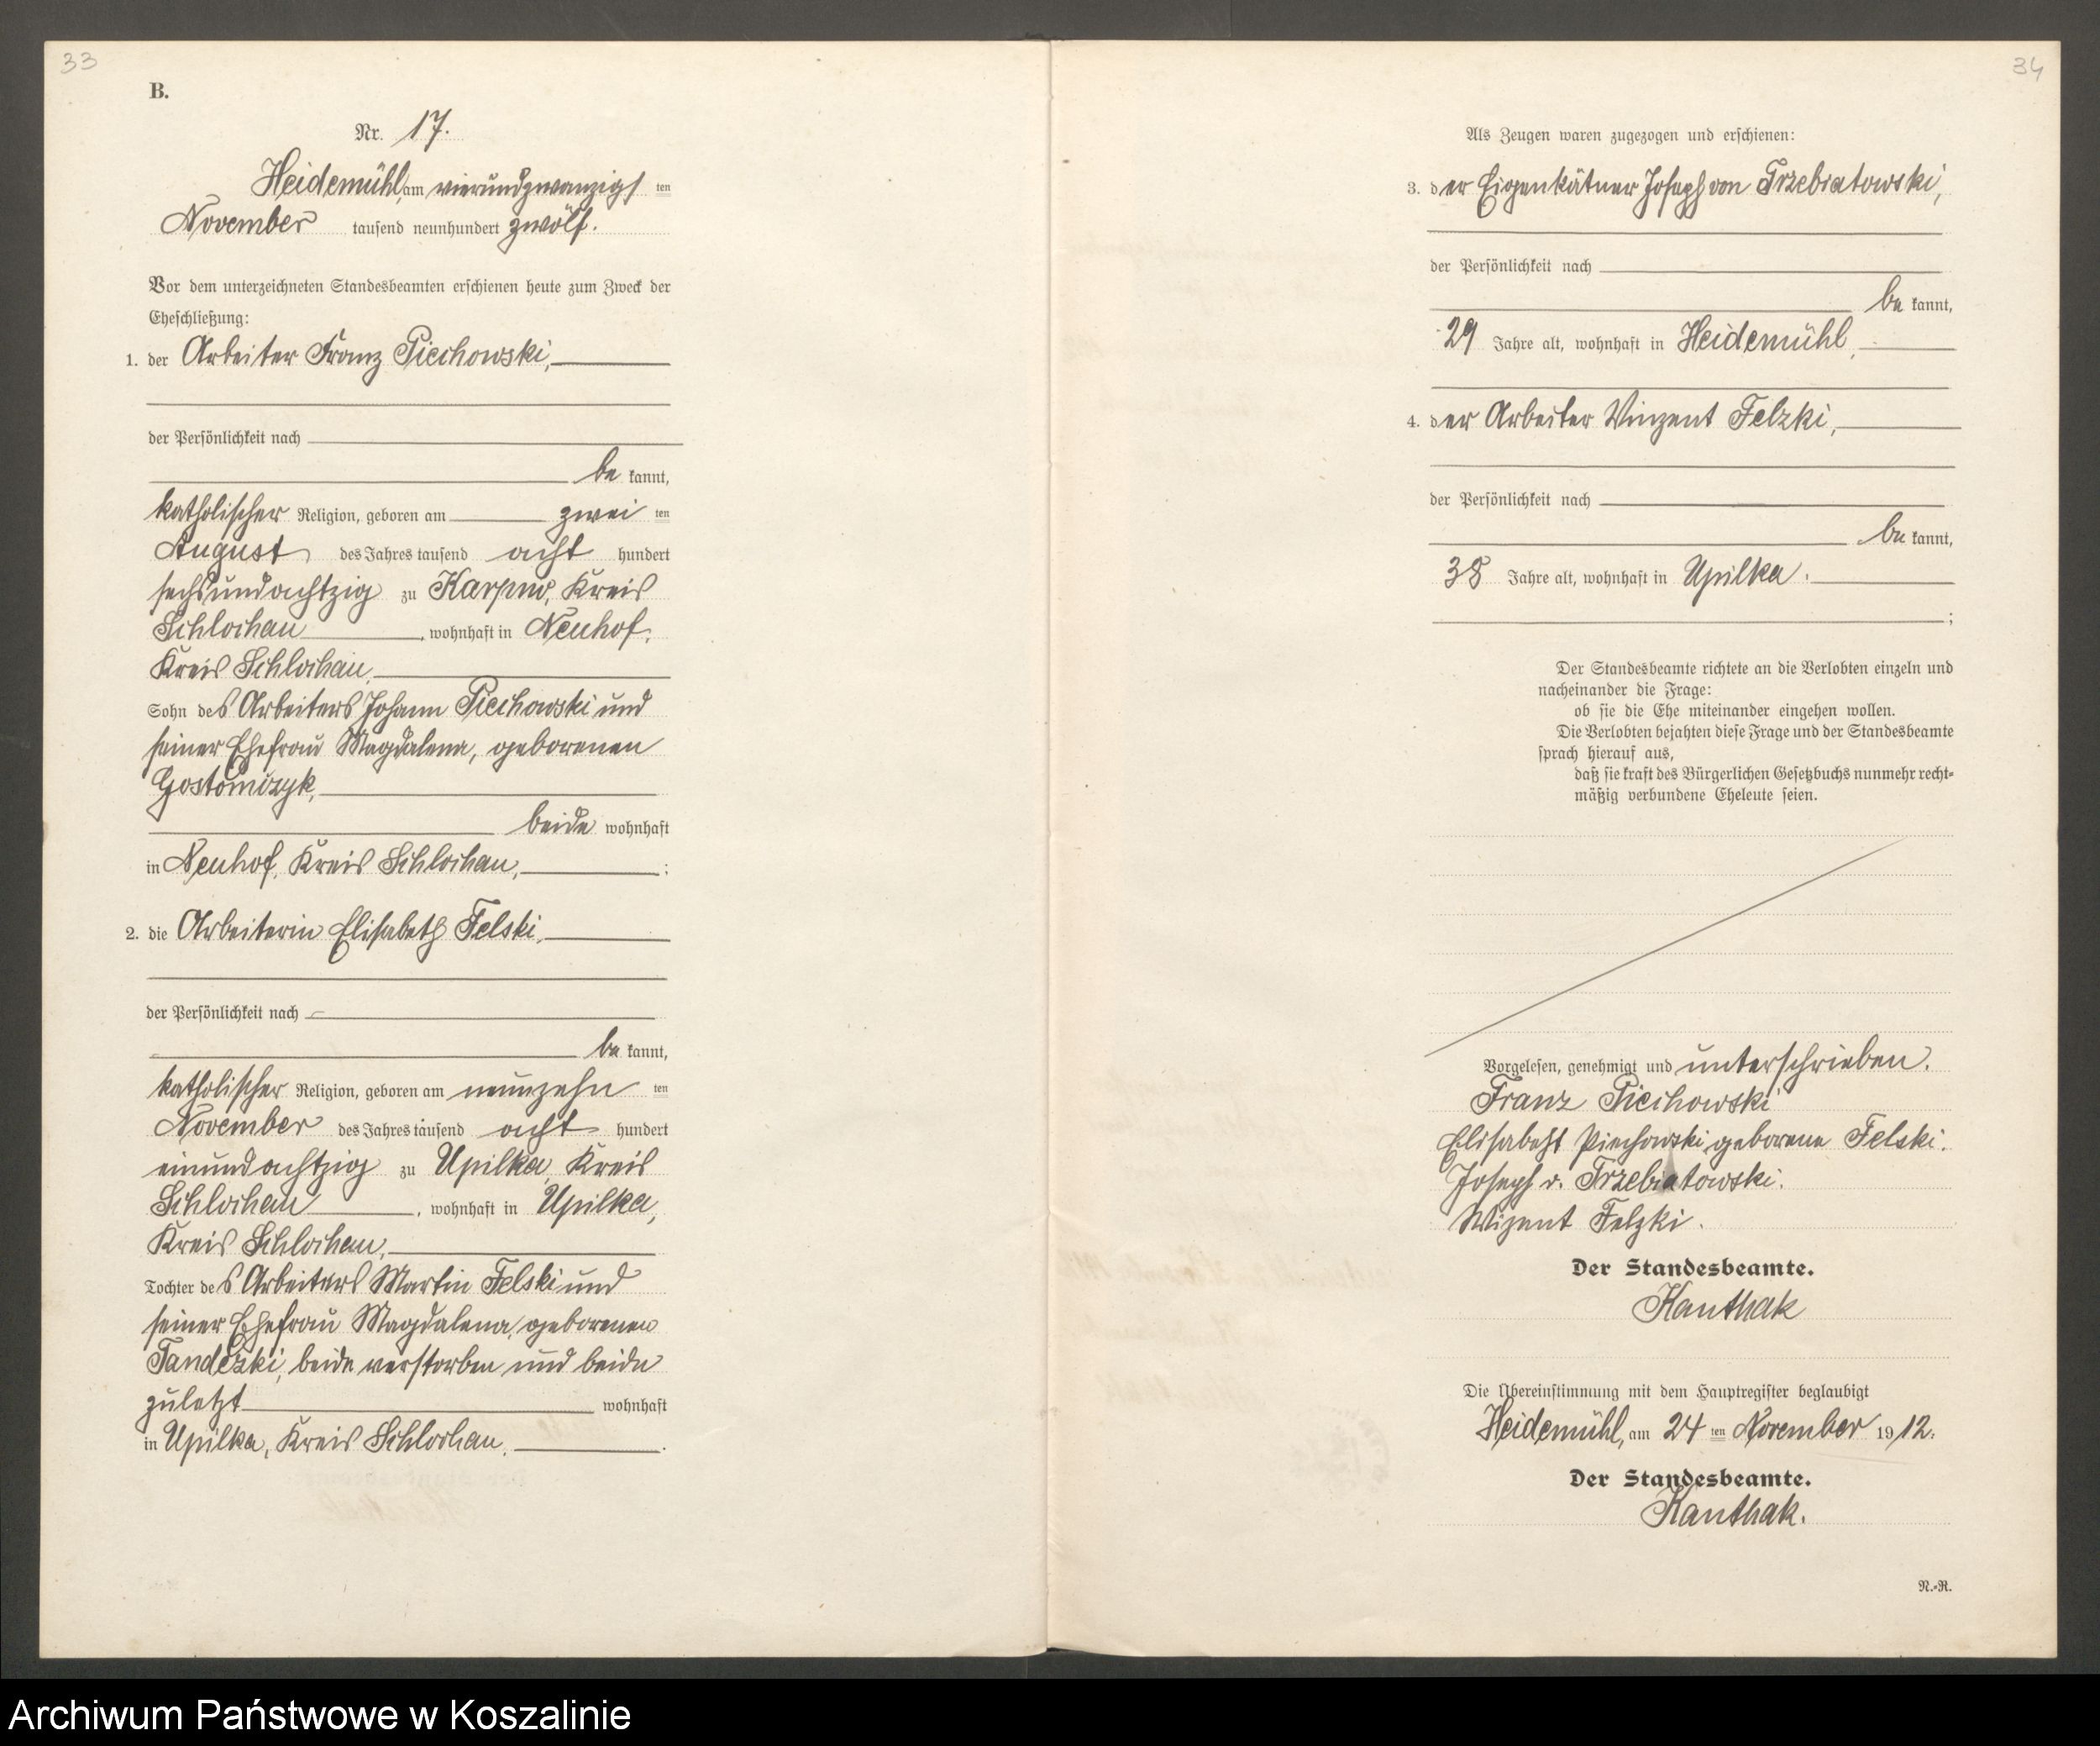 33
B.
Nr. 17.
Heidemühl, am vierundzwanzigsten
November tausend neunhundert zwölf.
Vor dem unterzeichneten Standesbeamten erschienen heute zum Zweck der
Eheschließung:
1. der Arbeiter Franz Piechowski,
der Persönlichkeit nach
be kannt,
katholischer Religion, geboren am zwei ten
August des Jahres tausend acht hundert
sechsundachtzig zu Karpno, Kreis
Schlochau, wohnhaft in Neuhof,
Kreis Schlochau,
Sohn des Arbeiters Johann Piechowski und
seiner Ehefrau Magdalena, geborenen
Gostomczyk,
beide wohnhaft
in Neuhof, Kreis Schlochau, ;
2. die Arbeiterin Elisabeth Felski,
der Persönlichkeit nach
be kannt,
katholischer Religion, geboren am neunzehn ten
November des Jahres tausend acht hundert
einundachtzig zu Upilka, Kreis
Schlochau, wohnhaft in Upilka,
Kreis Schlochau,
Tochter des Arbeiters Martin Felski und
seiner Ehefrau Magdalena, geborenen
beide verstorben und beide
zuletzt wohnhaft
in Upilka, Kreis Schlochau, .
34
Als Zeugen waren zugezogen und erschienen:
3. der Eigenkätner Joseph von Trzebiatowski,
der Persönlichkeit nach
be kannt,
29 Jahre alt, wohnhaft in Heidemühl,
4. der Arbeiter Vinzent Felzki,
der Persönlichkeit nach
be kannt,
38 Jahre alt, wohnhaft in Upilka.
;
Der Standesbeamte richtete an die Verlobten einzeln und
nacheinander die Frage:
ob sie die Ehe miteinander eingehen wollen.
Die Verlobten bejahten diese Frage und der Standesbeamte
sprach hierauf aus,
daß sie kraft des Bürgerlichen Gesetzbuchs nunmehr recht-
mäßig verbundene Eheleute seien.
Vorgelesen, genehmigt und unterschrieben.
Franz Piechowski
Elisabeht Piechowski geborene Felski.
Joseph v. Trzebiatowski.
Wizent Felzki.
Der Standesbeamte.
Kanthak
Die Übereinstimmung mit dem Hauptregister beglaubigt
Heidemühl, am 24 ten November 1912.
Der Standesbeamte.
Kanthak.
N.-R.
Archiwum Państwowe w Koszalinie